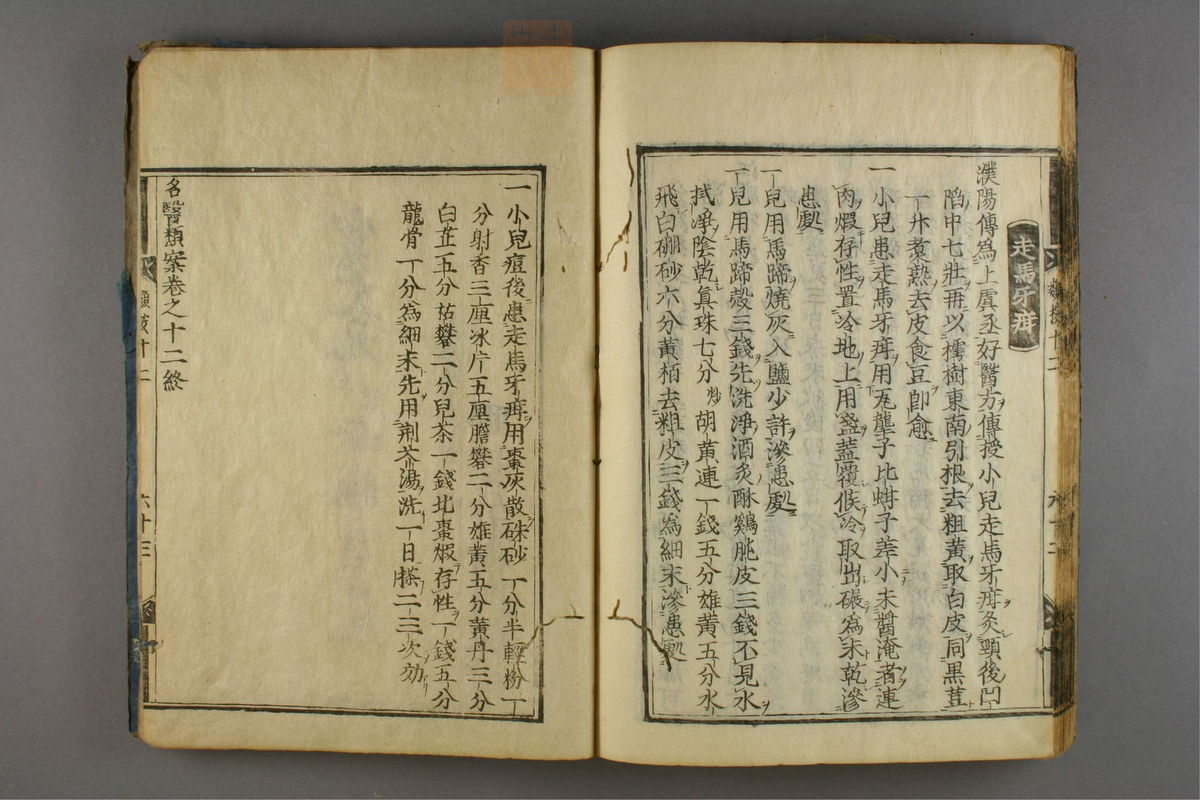 走馬牙疳
濮陽傳為上虞丞好醫方傳授小兒走馬牙疳灸頸後凹
陷中七壯再以樗樹東南引根去粗黃取白皮同黑荳
一升煮熟去皮食豆卽愈
一小兒患走馬牙疳用瓦壟子比蚶子差小未醬淹者連
肉煆存性置冷地上用盞蓋覆候冷取出碾為末乾滲
患處
一兒用馬蹄燒灰入鹽少許滲患處
一兒用馬蹄殼三錢先洗淨酒炙酥鷄肫皮三錢不見水
拭淨陰乾真珠七分炒胡黃連一錢五分雄黃五分水
飛白硼砂六分黃栢去粗皮三錢為細末滲患處
一小兒痘後患走馬牙疳用棗灰散硃砂一分半輕粉一
分射香三厘冰片五厘膽礬二分雄黃五分黃丹三分
白芷五分枯礬二分兒茶一錢北棗煆存性一錢五分
龍骨一分為細末先用荆芥湯洗一日搽二三次効
名醫類案卷之十二終
六十三